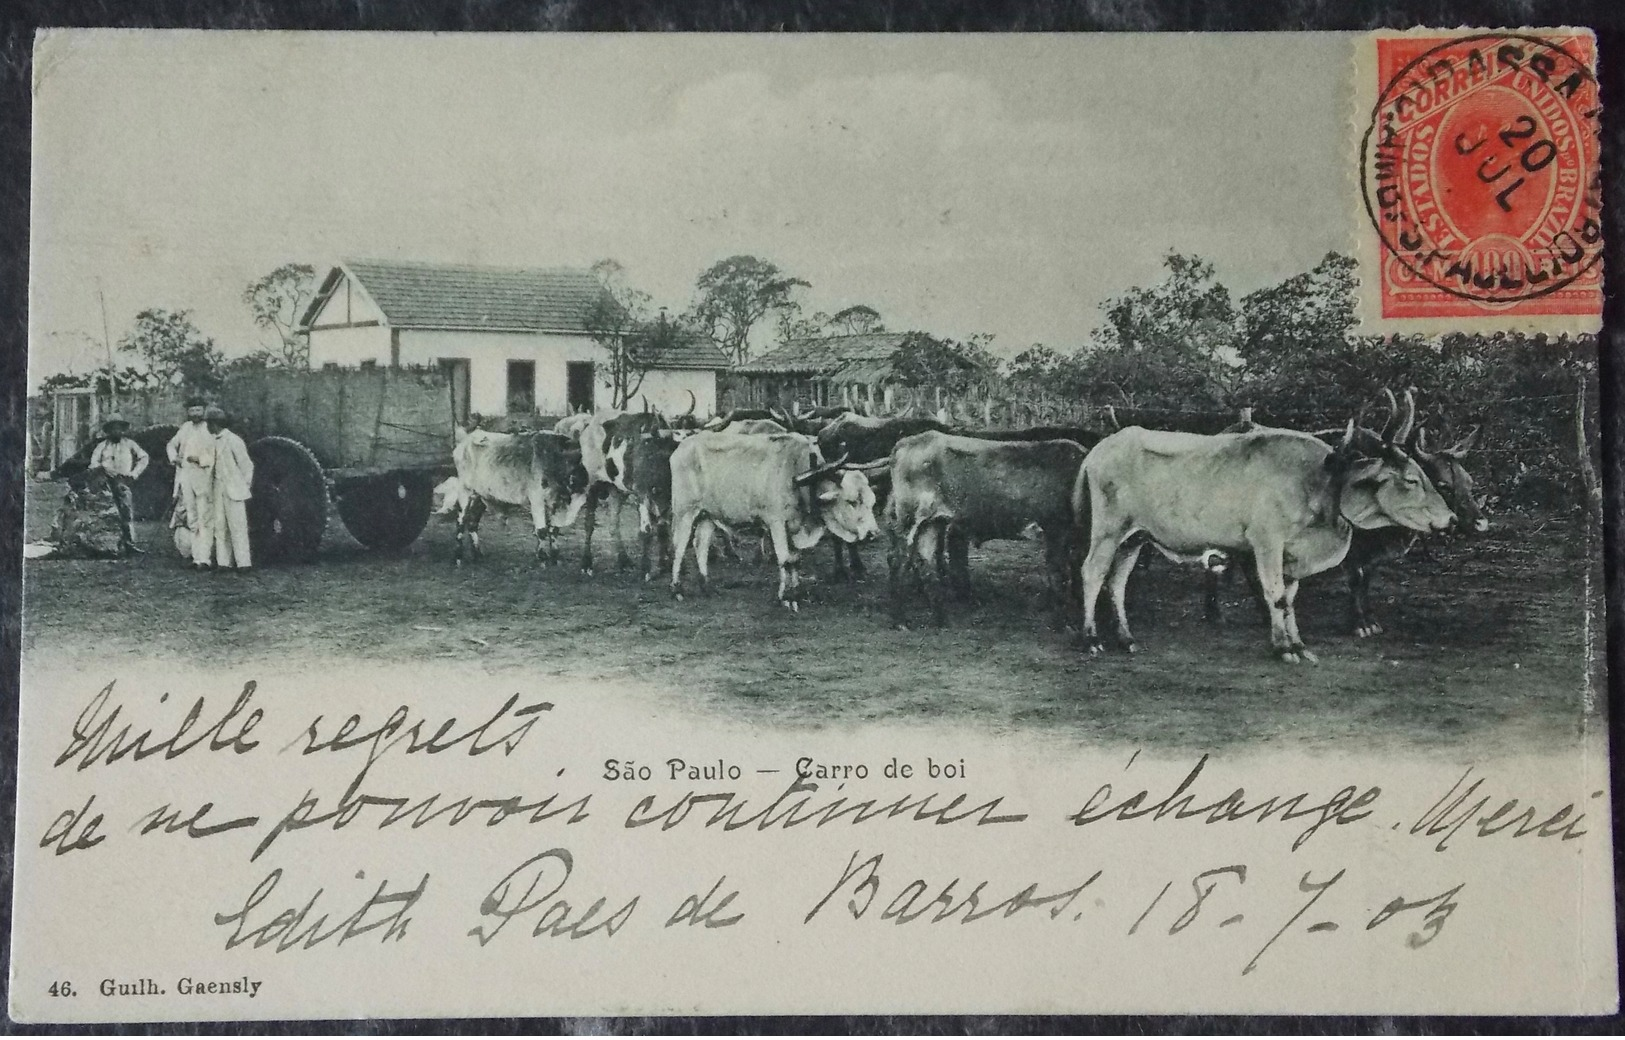 CORREIO
ESTADOS UNIDOS DO BRAZIL
100
20
JUL
S. PAULO
Mille regrets
São Paulo — Carro de boi
de ne pouvoir continuer échange. Merci
Edith Paes de Barros. 18-7-03
46. Guilh. Gaensly